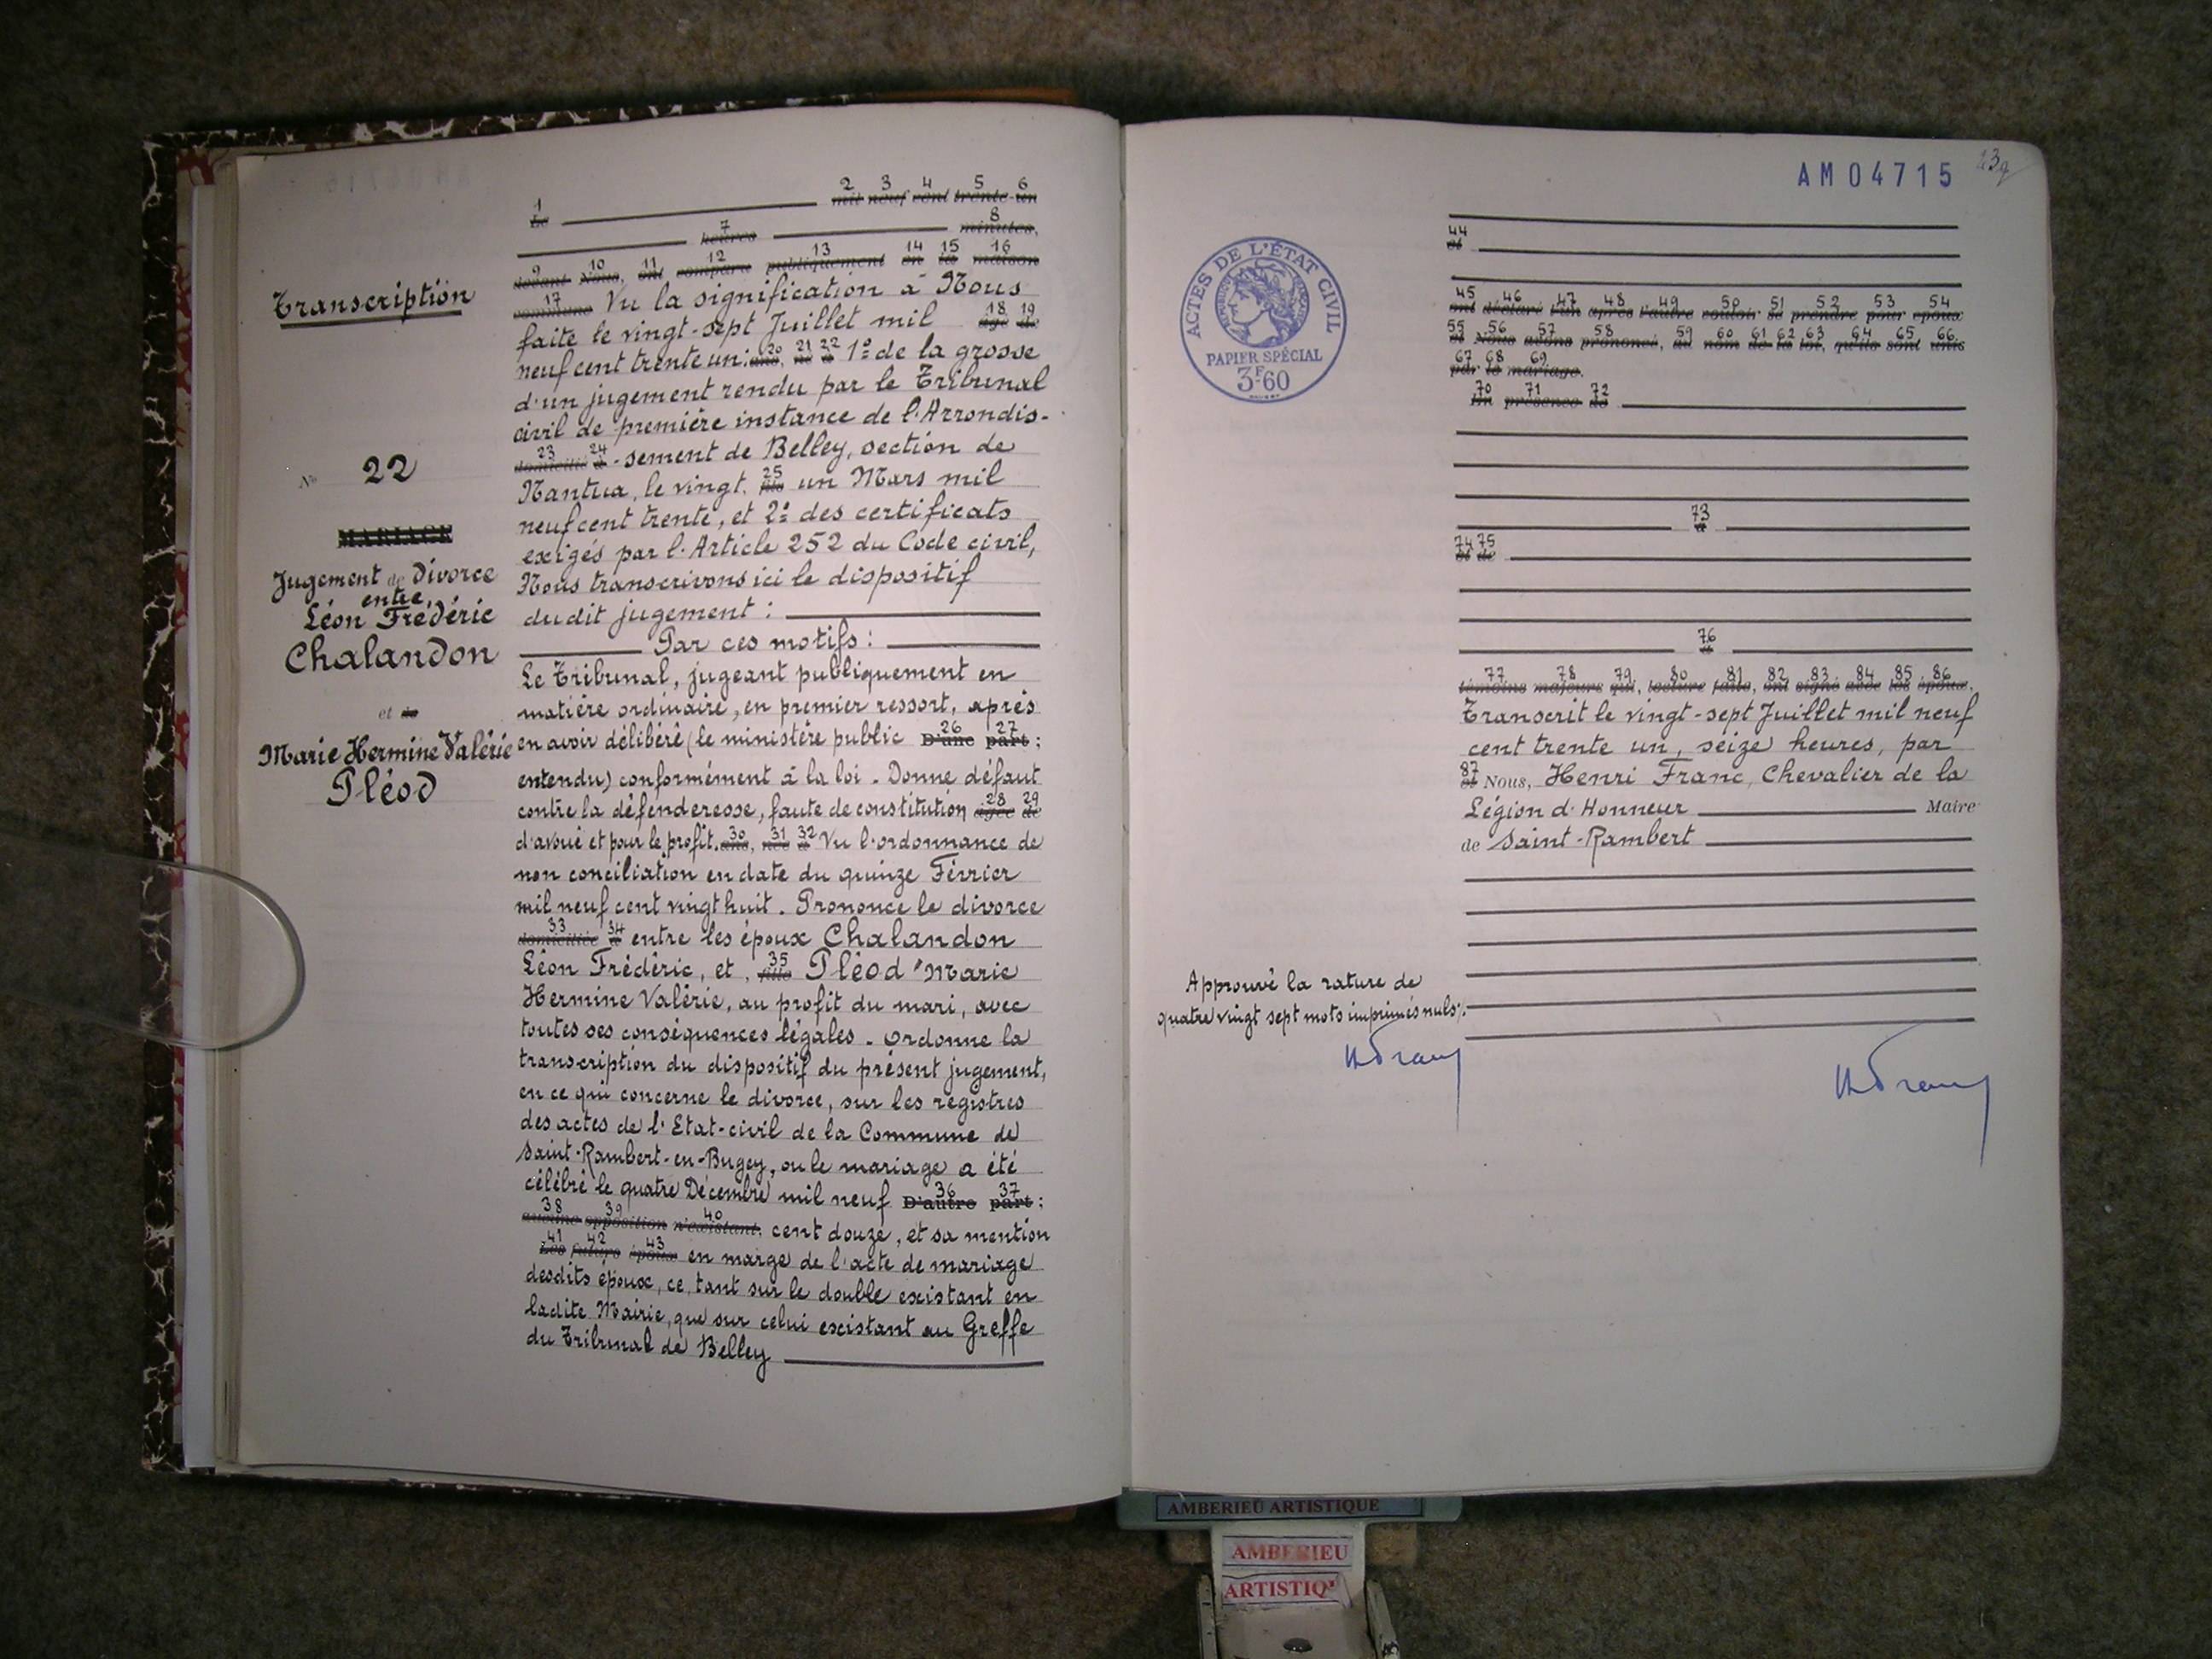 Transcription
N° 22
MARIAGE
Jugement de Divorce
entre,
Léon Frédéric
Chalandon
et de
Marie Hermine Valérie
Pléod
1 2 3 4 5 6
Le mil neuf cent trente-un
7 8
heures minutes,
9 10 11 12 13 14 15 16
devant Nous, ont comparu publiquement en la maison
17
commune Vu la signification à Nous
18 19
faite le vingt-sept Juillet mil âgé de
20 21 22
neuf cent trente un: ans, né à 1º de la grosse
d'un jugement rendu par le Tribunal
civil de première instance de l'Arrondis-
23 24
domicilié à -sement de Belley, section de
25
Nantua, le vingt. fils un Mars mil
neuf cent trente, et 2º des certificats
exigés par l'Article 252 du Code civil,
Nous transcrivons ici le dispositif
dudit jugement :
Par ces motifs :
Le Tribunal, jugeant publiquement en
matière ordinaire, en premier ressort, après
26 27
en avoir délibéré (le ministère public D'une part ;
entendu) conformément à la loi. Donne défaut
28 29
contre la défenderesse, faute de constitution âgée de
30 31 32
d'avoué et pour le profit. ans, née à Vu l'ordonnance de
non conciliation en date du quinze Février
mil neuf cent vingt huit. Prononce le divorce
33 34
domiciliée à entre les époux Chalandon
35
Léon Frédéric, et, fille Pléod Marie
Hermine Valérie, au profit du mari, avec
toutes ses conséquences légales. Ordonne la
transcription du dispositif du présent jugement,
en ce qui concerne le divorce, sur les registres
des actes de l'Etat-civil de la Commune de
Saint-Rambert-en-Bugey, ou le mariage a été
36 37
célébré le quatre Décembre mil neuf D'autre part ;
38 39 40
aucune opposition n'existant. cent douze, et sa mention
41 42 43
Les futurs époux en marge de l'acte de mariage
desdits époux, ce, tant sur le double existant en
ladite Mairie, que sur celui existant au Greffe
du Tribunal de Belley
AM04715
ACTES DE L'ÉTAT CIVIL
PAPIER SPÉCIAL
3F60
44
et
45 46 47 48 49 50 51 52 53 54
ont déclaré l'un après l'autre vouloir se prendre pour époux
55 56 57 58 59 60 61 62 63 64 65 66
et Nous avons prononcé, au nom de la loi, qu'ils sont unis
67 68 69
par le mariage.
70 71 72
En présence de
73
74 75
et de
76
77 78 79 80 81 82 83 84 85 86
témoins majeurs qui, lecture faite, ont signé avec les époux.
Transcrit le vingt-sept Juillet mil neuf
cent trente un, seize heures, par
87
et Nous, Henri Franc, Chevalier de la
Légion d'Honneur Maire
de Saint-Rambert
Approuvé la rature de
quatre vingt sept mots imprimés nuls.
AMBERIEU ARTISTIQUE
AMBERIEU
ARTISTIQ